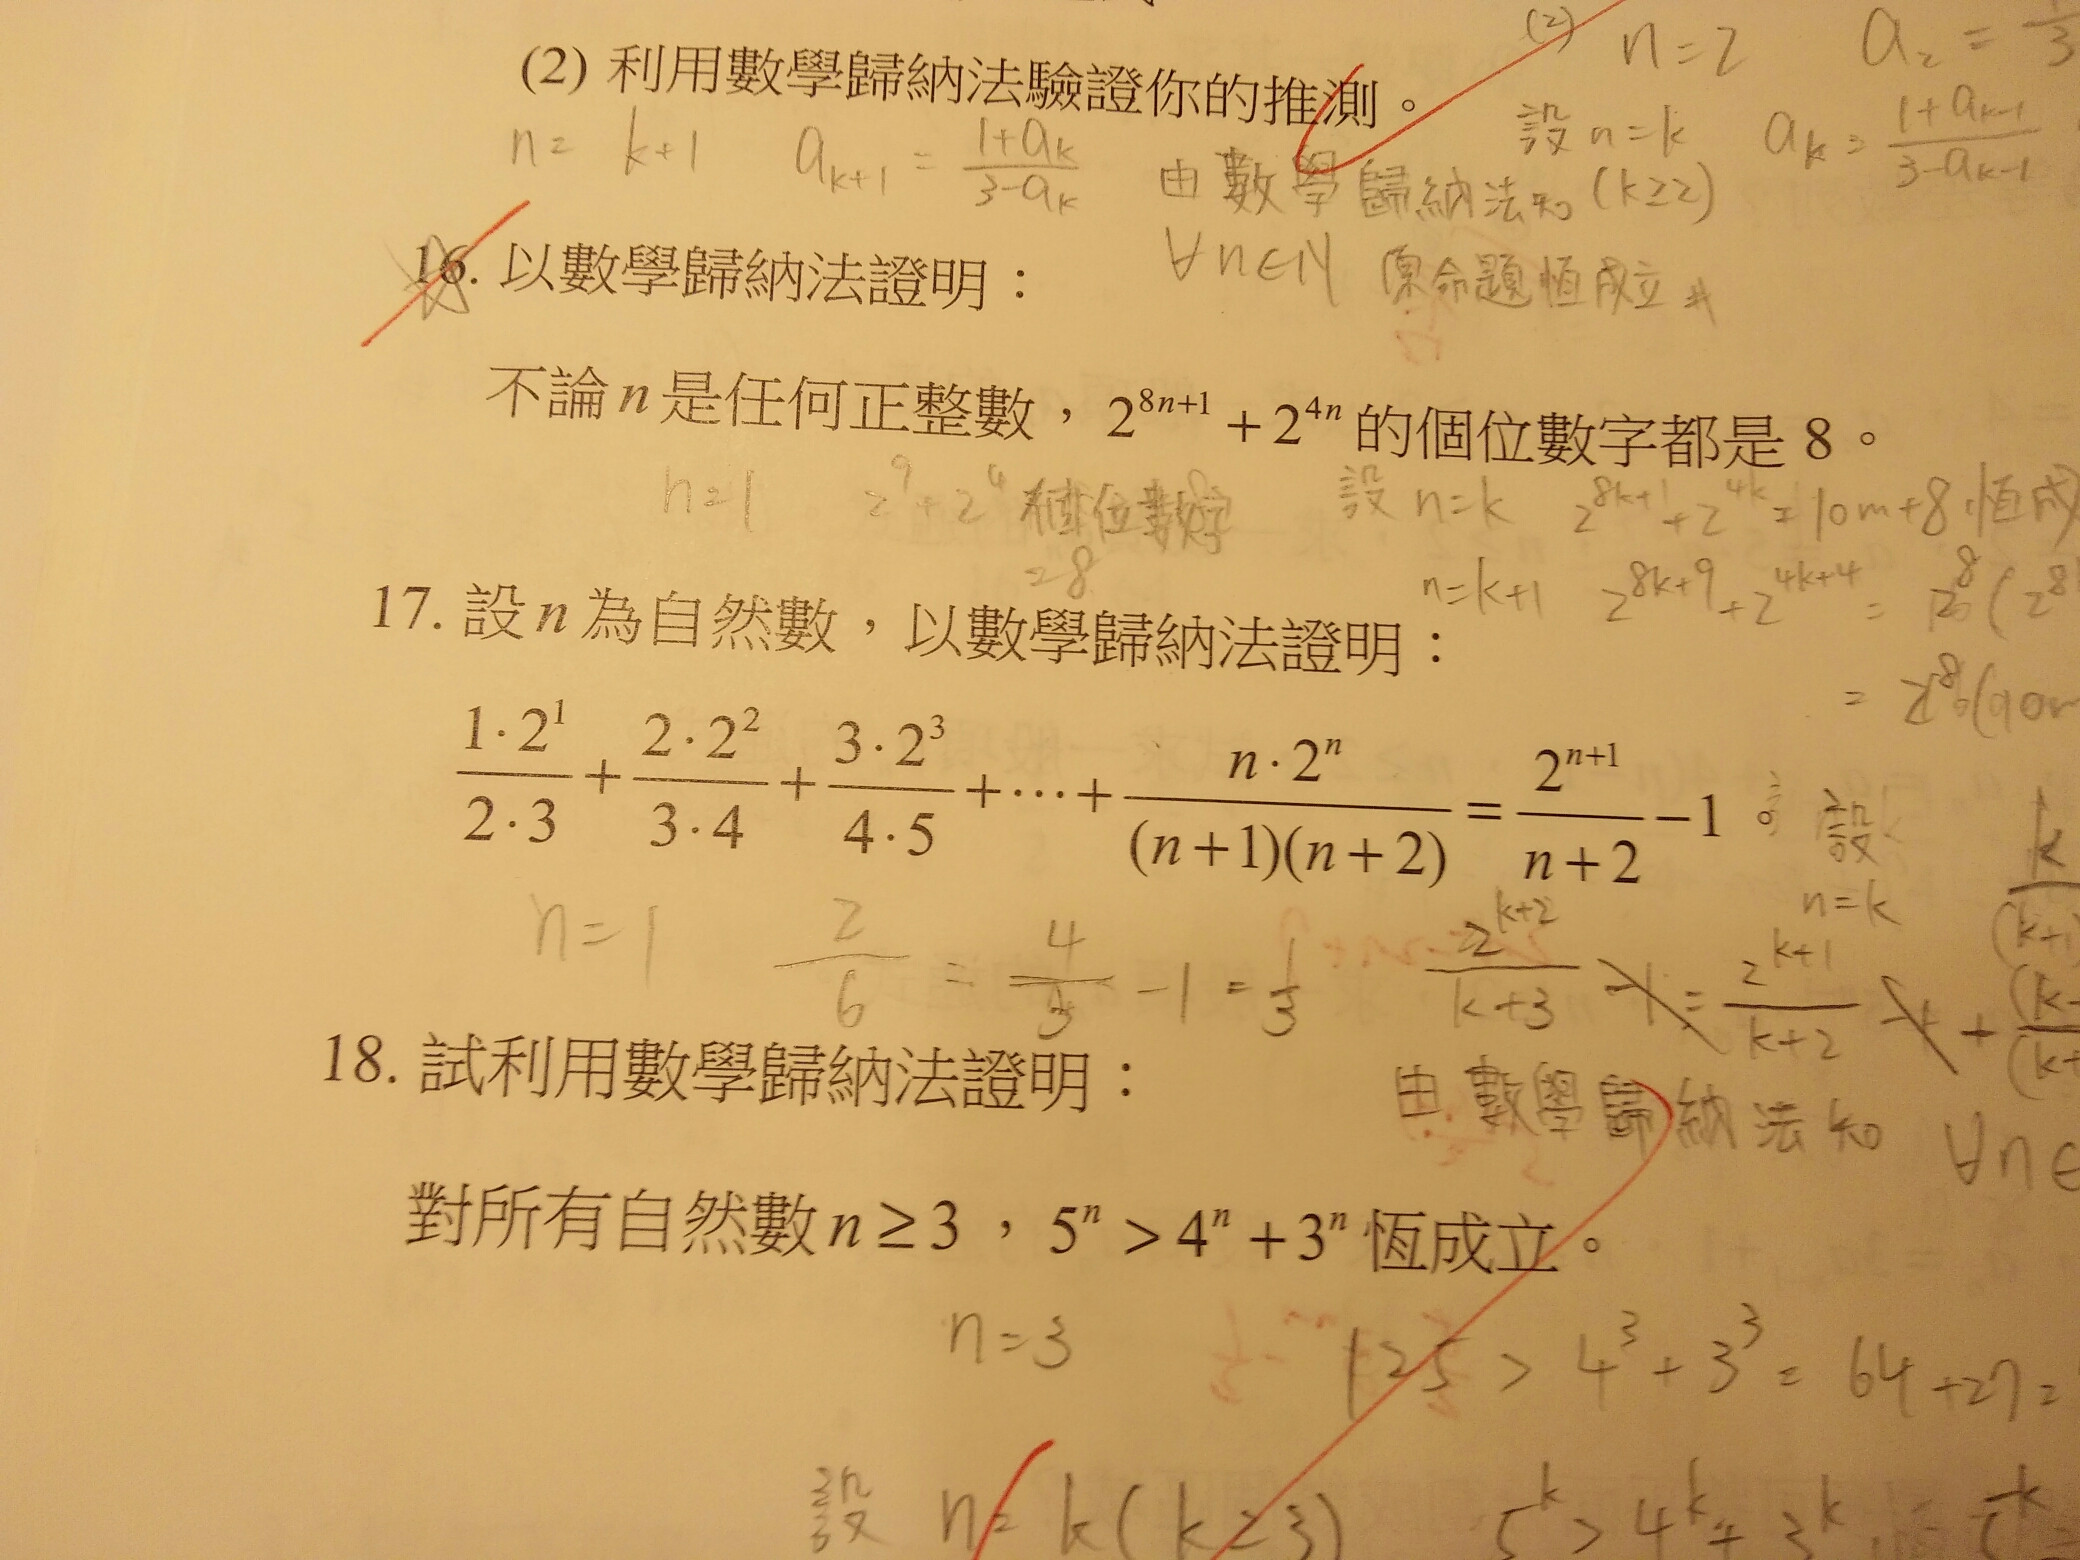 (2) 利用數學歸納法驗證你的推測。
(2) n=2 a₂ =
設 n=k aₖ = (1+aₖ₋₁)/(3-aₖ₋₁)
n= k+1 aₖ₊₁ = (1+aₖ)/(3-aₖ) 由數學歸納法知 (k≥2)
∀n∈N 原命題恒成立
16. 以數學歸納法證明：
不論 n 是任何正整數，2^{8n+1} + 2^{4n} 的個位數字都是 8。
n=1 2⁹+2⁴ 個位數字 =8
設 n=k 2^{8k+1}+2^{4k}=10m+8 恒成
n=k+1 2^{8k+9}+2^{4k+4} = 2⁸(2
= 2⁸(10m
17. 設 n 為自然數，以數學歸納法證明：
(1·2¹)/(2·3) + (2·2²)/(3·4) + (3·2³)/(4·5) + ⋯ + (n·2ⁿ)/((n+1)(n+2)) = 2^{n+1}/(n+2) − 1。
設 n=k
n=1 2/6 = 4/3 -1 = 1/3
2^{k+2}/(k+3) -1 = 2^{k+1}/(k+2) -1 +
由數學歸納法知 ∀n∈
18. 試利用數學歸納法證明：
對所有自然數 n ≥ 3，5ⁿ > 4ⁿ + 3ⁿ 恆成立。
n=3 125 > 4³+3³ = 64+27=
設 n= k(k≥3) 5ᵏ > 4ᵏ+3ᵏ